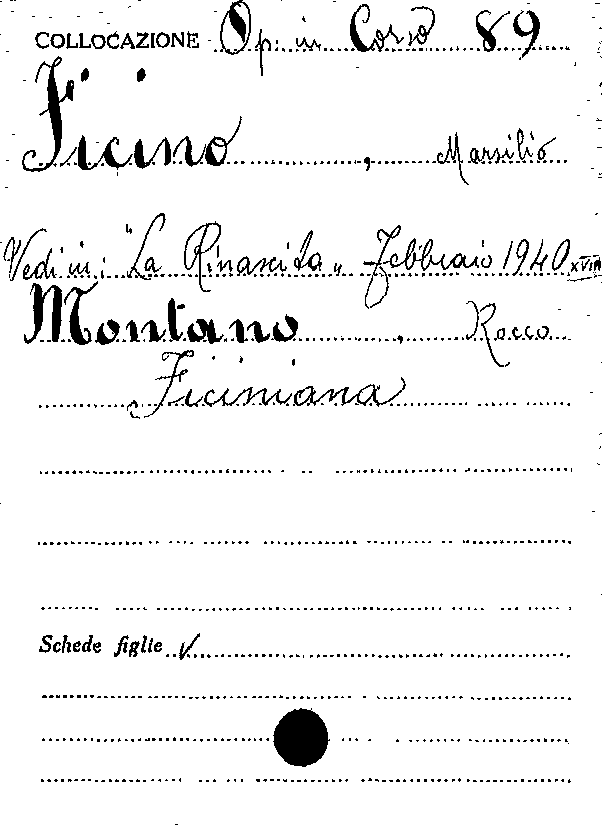 COLLOCAZIONE Op. in Corso 89
Ficino, Marsilio
Vedi in: "La Rinascita" Febbraio 1940 XVIII
Montano, Rocco
Ficiniana
Schede figlie